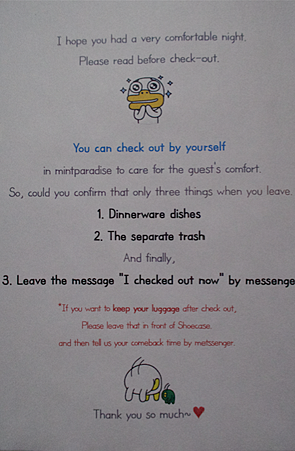 I hope you had a very comfortable night.
Please read before check-out.
You can check out by yourself
in mintparadise to care for the guest's comfort.
So, could you confirm that only three things when you leave.
1. Dinnerware dishes
2. The separate trash
And finally,
3. Leave the message "I checked out now" by messenge
*If you want to keep your luggage after check out,
Please leave that in front of Shoecase.
and then tell us your comeback time by metssenger.
Thank you so much~♥